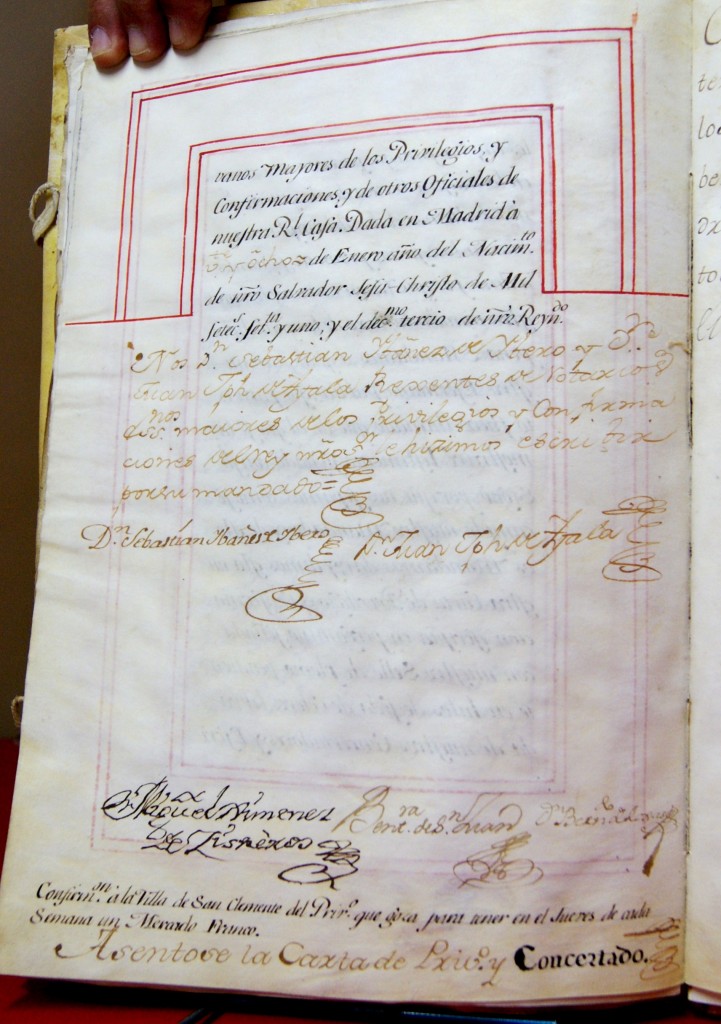 vanos Majores de los Privilegios, y
Confirmaciones, y de otros Oficiales de
nuestra Rl. Casa. Dada en Madrid à
de Enero año del Nacimto
de nro Salvador Jesu-Christo de Mil
Setects. Setta y uno; y el decmo tercio de nro Reyndo
Nos Dn. Sebastian Ybañez de Ybero y Dn.
Juan Jph de Ayala Rexentes de
maiores de los Privilegios y Confirma
ciones del rey nro sor le hizimos escribir
por su mandado=
Dn. Sebastian Ibañes de Ybero Dn. Juan Jph de Ayala
Miguel Ximenez
de Cisneros
Vente. de Sn. Juan
Confirmon. à la Villa de San Clemente del Privo. que goza para tener en el Jueves de cada
Semana un Mercado Franco.
Asentose la Carta de Privo. y Concertado.